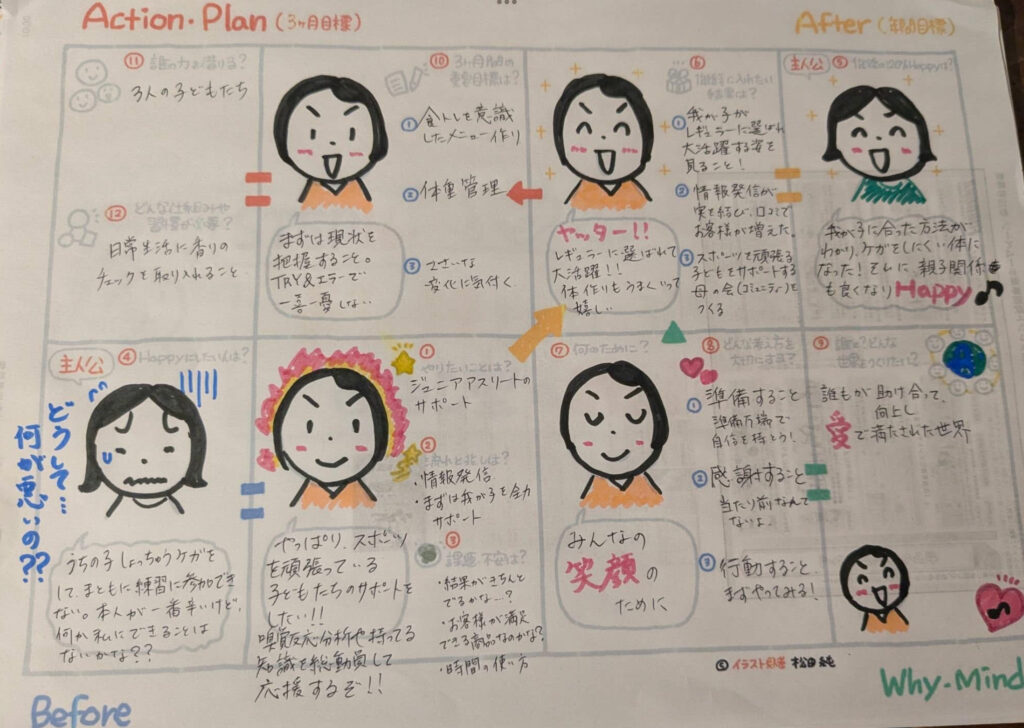 Action・Plan (3ヶ月目標)
After (年間目標)
⑪ 誰の力を借りる?
3人の子どもたち
⑫ どんな仕組みや
習慣が必要?
日常生活に香りの
チェックを取り入れること
まずは現状を
把握すること。
TRY&エラーで
一喜一憂しない
⑩ 3ヶ月間の
重要目標は?
①
したメニュー作り
② 体重管理
③ ささいな
変化に気付く
ヤッター!!
レギュラーに選ばれて
大活躍!!
体作りもうまくいって
嬉しい
⑥
結果は?
① 我が子が
レギュラーに選ばれ
大活躍する姿を
見ること!
② 情報発信が
実を結び、口コミで
お客様が増えた。
③ スポーツを頑張る
子どもをサポートする
母の会(コミュニティ)を
つくる
主人公
⑤
我が子に合った方法が
わかり、ケガをしにくい体に
なった!それに、親子関係
も良くなり Happy
主人公
④ Happyにしたい人は?
どうして…
何が悪いの??
うちの子 しょっちゅうケガを
して、まともに練習に参加でき
ない。本人が一番辛いけど、
何か私にできることは
ないかな??
① やりたいことは?
ジュニアアスリートの
サポート
②
・情報発信
・まずは我が子を全力
サポート
③ 課題・不安は?
・結果がきちんと
でるかな…?
・お客様が満足
できる商品なのかな?
・時間の使い方
やっぱり、スポーツ
を頑張っている
子どもたちのサポートを
したい!!
嗅覚反応分析や持ってる
知識を総動員して
応援するぞ!!
⑦ 何のために?
みんなの
笑顔の
ために
⑧ どんな考え方を
大切にする?
① 準備すること
準備万端で
自信を持とう!
② 感謝すること
当たり前なんて
ないよ。
③ 行動すること
まずやってみる!
⑨ 誰と?どんな
世界をつくりたい?
誰もが助け合って、
向上し
愛で満たされた世界
© イラスト処 松田純
Before
Why・Mind